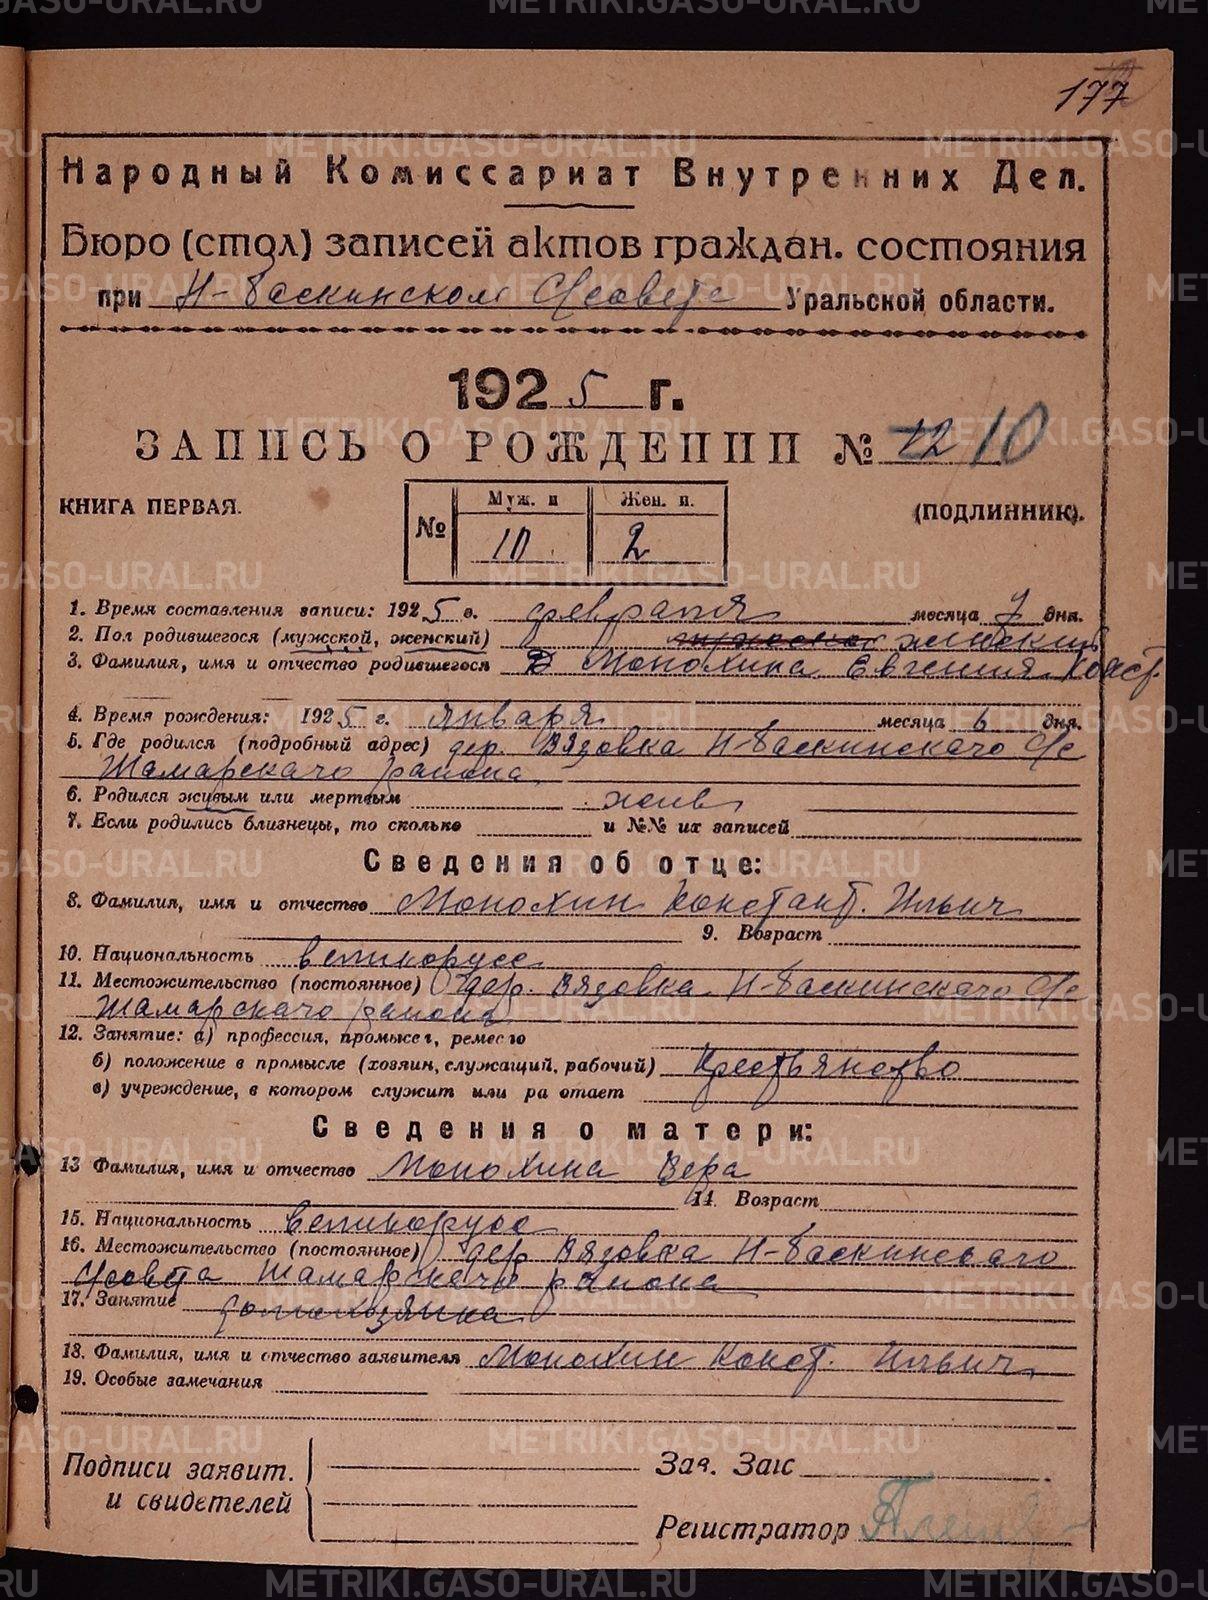 177
Народный Комиссариат Внутренних Дел.
Бюро (стол) записей актов граждан. состояния
при Н-Баскинском С/совете Уральской области.
1925 г.
ЗАПИСЬ О РОЖДЕНИИ № 12 10
КНИГА ПЕРВАЯ. (ПОДЛИННИК).
№ Муж. п Жен. п.
10 2
1. Время составления записи: 1925 г. февраля месяца 7 дня.
2. Пол родившегося (мужской, женский) мужской женский
3. Фамилия, имя и отчество родившегося Монохина Евгения Конст.
4. Время рождения: 1925 г. января месяца 6 дня.
5. Где родился (подробный адрес) дер. Вязовка Н-Баскинскаго С/с
Шамарскаго района
6. Родился живым или мертвым жив
7. Если родились близнецы, то сколько и №№ их записей
Сведения об отце:
8. Фамилия, имя и отчество Монохин Констант. Ильич
9. Возраст
10. Национальность великорусс
11. Местожительство (постоянное) дер. Вязовка Н-Баскинскаго С/с
Шамарскаго района
12. Занятие: а) профессия, промысел, ремесло
б) положение в промысле (хозяин, служащий, рабочий) Крестьянство
в) учреждение, в котором служит или работает
Сведения о матери:
13 Фамилия, имя и отчество Монохина Вера
14. Возраст
15. Национальность великорусс
16. Местожительство (постоянное) дер Вязовка Н-Баскинскаго
С/совета Шамарскаго района
17. Занятие домохозяйка
18. Фамилия, имя и отчество заявителя Монохин Конст. Ильич
19. Особые замечания
Подписи заявит. Зав. Загс
и свидетелей
Регистратор
METRIKI.GASO-URAL.RU